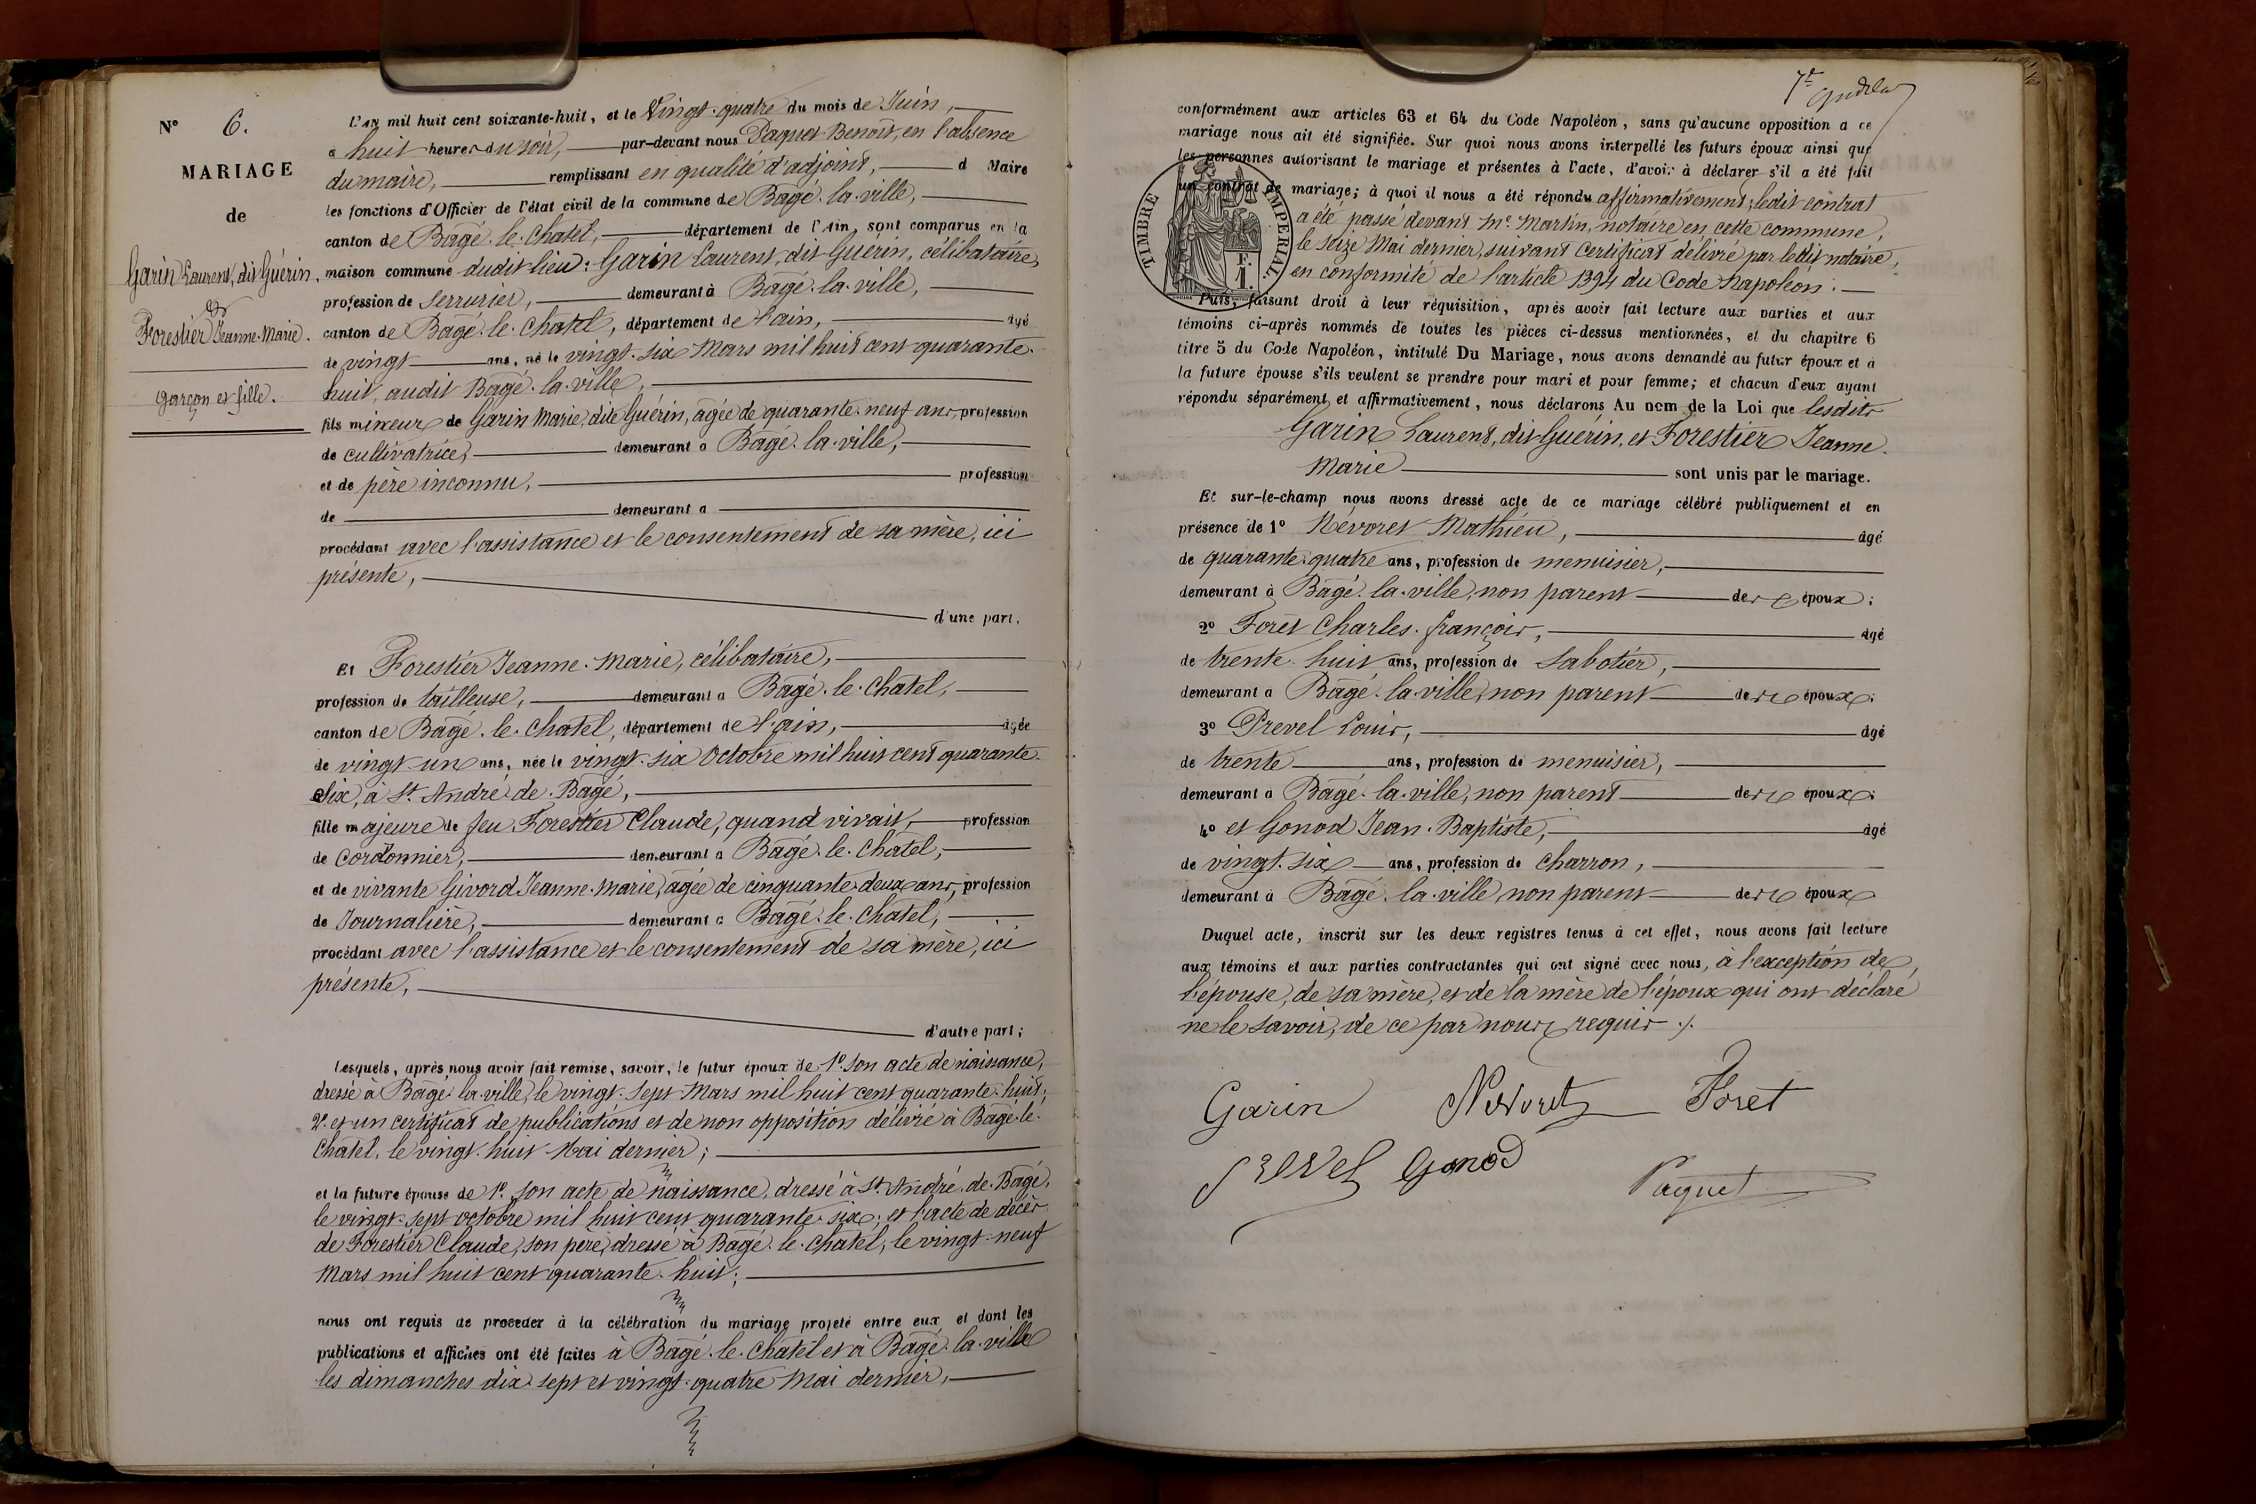 N° 6.
MARIAGE
de
Garin Laurent, dit Guérin,
&
Forestier Jeanne-Marie.
garçon et fille.
L'an mil huit cent soixante-huit, et le Vingt-quatre du mois de Juin,
a huit heures du soir, par-devant nous Paquet Benoit, en l'absence
du maire, remplissant en qualité d'adjoint, d Maire
les fonctions d'Officier de l'état civil de la commune de Bâgé-la-ville,
canton de Bâgé-le-Chatel, département de l'Ain, sont comparus en la
maison commune dudit lieu: Garin Laurent, dit Guérin, célibataire,
profession de serrurier, demeurant à Bâgé-la-ville,
canton de Bâgé-le-Chatel, département de l'ain, âgé
de vingt ans, né le vingt-six Mars mil huit cent quarante-
huit, audit Bâgé-la-ville,
fils mineur de Garin Marie, dite Guérin, âgée de quarante-neuf ans, profession
de cultivatrice, demeurant a Bâgé-la-ville,
et de père inconnu, profession
de demeurant a
procédant avec l'assistance et le consentement de sa mère, ici
présente,
d'une part.
Et Forestier Jeanne-Marie, célibataire,
profession de tailleuse, demeurant a Bâgé-le-Chatel,
canton de Bâgé-le-Chatel, département de l'ain, âgée
de vingt-un ans, née le vingt-six Octobre mil huit cent quarante-
Six, à St. André-de-Bâgé,
fille majeure de feu Forestier Claude, quand vivait, profession
de Cordonnier, demeurant a Bâgé-le-Chatel,
et de vivante Givord Jeanne-Marie, âgée de cinquante-deux ans, profession
de Journalière, demeurant a Bâgé-le-Chatel,
procédant avec l'assistance et le consentement de sa mère, ici
présente,
d'autre part;
Lesquels, après nous avoir fait remise, savoir, le futur époux de 1°. son acte de naissance,
dressé à Bâgé-la-ville, le vingt-sept Mars mil huit cent quarante-huit;
2°. et un certificat de publications et de non opposition délivré à Bâgé-le-
Chatel, le vingt-huit Mai dernier;
et la future épouse de 1°. son acte de naissance, dressé à St. André-de-Bâgé,
le vingt-sept octobre mil huit cent quarante-six; et l'acte de décès
de Forestier Claude, son père, dressé à Bâgé-le-Chatel, le vingt-neuf
Mars mil huit cent quarante-huit;
nous ont requis de procéder à la célébration du mariage projeté entre eux, et dont les
publications et affiches ont été faites à Bâgé-le-Chatel et à Bâgé-la-ville
les dimanches dix-sept et vingt-quatre Mai dernier,
7e
conformément aux articles 63 et 64 du Code Napoléon, sans qu'aucune opposition a ce
mariage nous ait été signifiée. Sur quoi nous avons interpellé les futurs époux ainsi que
les personnes autorisant le mariage et présentes à l'acte, d'avoir à déclarer s'il a été fait
un contrat de mariage; à quoi il nous a été répondu affirmativement; ledit contrat
a été passé devant Me. Martin, notaire en cette commune,
le seize Mai dernier, suivant certificat délivré par ledit notaire,
en conformité de l'article 1394 du Code Napoléon.
TIMBRE IMPERIAL.
F.
1.
Puis, faisant droit à leur réquisition, après avoir fait lecture aux parties et aux
témoins ci-après nommés de toutes les pièces ci-dessus mentionnées, et du chapitre 6
titre 5 du Code Napoléon, intitulé Du Mariage, nous avons demandé au futur époux et à
la future épouse s'ils veulent se prendre pour mari et pour femme; et chacun d'eux ayant
répondu séparément et affirmativement, nous déclarons Au nom de la Loi que lesdits
Garin Laurent, dit Guérin, et Forestier Jeanne-
Marie sont unis par le mariage.
Et sur-le-champ nous avons dressé acte de ce mariage célébré publiquement et en
présence de 1° Névoret Mathieu, âgé
de quarante-quatre ans, profession de menuisier,
demeurant à Bâgé-la-ville, non parent des époux;
2° Foret Charles-françois, âgé
de trente-huit ans, profession de Sabotier,
demeurant a Bâgé-la-ville, non parent des époux;
3° Prevel Louis, âgé
de trente ans, profession de menuisier,
demeurant a Bâgé-la-ville, non parent des époux;
4° et Gonod Jean-Baptiste, âgé
de vingt-six ans, profession de charron,
demeurant à Bâgé-la-ville non parent des époux
Duquel acte, inscrit sur les deux registres tenus à cet effet, nous avons fait lecture
aux témoins et aux parties contractantes qui ont signé avec nous, à l'exception de
l'épouse, de sa mère, et de la mère de l'époux qui ont déclaré
ne le savoir, de ce par nous requis ./.
Garin Nevoret Foret
Prevel Gonod
Paquet